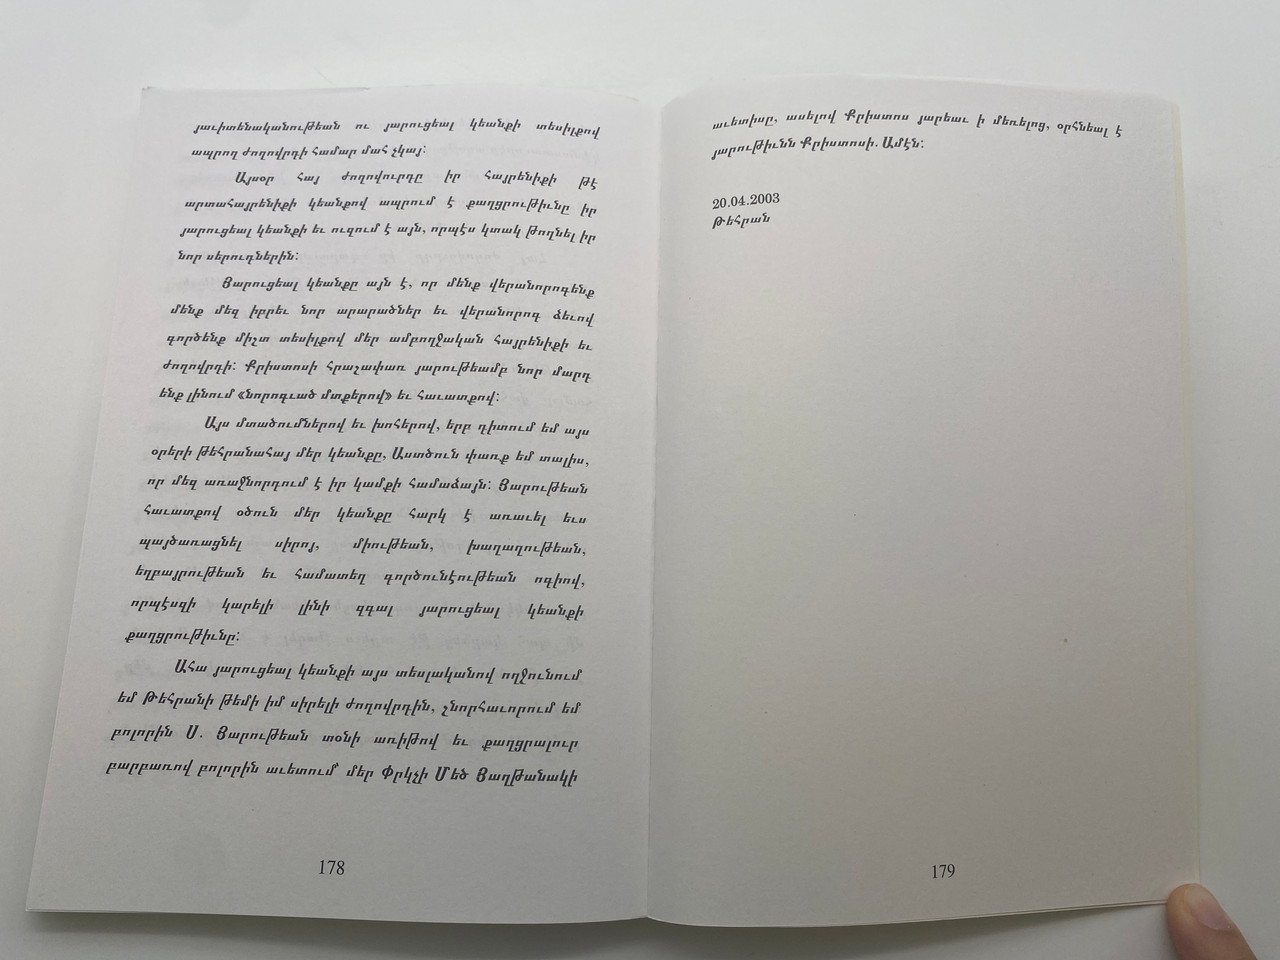 յաւիտենականութեան ու յարուցեալ կեանքի տեսիլքով
ապրող ժողովրդի համար մահ չկայ:
Այսօր հայ ժողովուրդը իր հայրենիքի թէ
արտահայրենիքի կեանքով ապրում է քաղցրութիւնը իր
յարուցեալ կեանքի եւ ուզում է այն, որպէս կտակ թողնել իր
նոր սերուդներին:
Յարուցեալ կեանքը այն է, որ մենք վերանորոգենք
մենք մեզ իբրեւ նոր արարածներ եւ վերանորոգ ձեւով
գործենք միշտ տեսիլքով մեր ամբողջական հայրենիքի եւ
ժողովրդի: Քրիստոսի հրաշափառ յարութեամբ նոր մարդ
ենք լինում «նորոգւած մտքերով» եւ հաւատքով:
Այս մտածումներով եւ խոհերով, երբ դիտում եմ այս
օրերի թեհրանահայ մեր կեանքը, Աստծուն փառք եմ տալիս,
որ մեզ առաջնորդում է իր կամքի համաձայն: Յարութեան
հաւատքով օծուն մեր կեանքը հարկ է առաւել եւս
պայծառացնել սիրոյ, միութեան, խաղաղութեան,
եղբայրութեան եւ համատեղ գործունէութեան ոգիով,
որպէսզի կարելի լինի զգալ յարուցեալ կեանքի
քաղցրութիւնը:
Ահա յարուցեալ կեանքի այս տեսլականով ողջունում
եմ Թեհրանի թեմի իմ սիրելի ժողովրդին, շնորհաւորում եմ
բոլորին Ս. Յարութեան տօնի առիթով եւ քաղցրալուր
բարբառով բոլորին աւետում՝ մեր Փրկչի Մեծ Յաղթանակի
178
աւետիսը, ասելով Քրիստոս յարեաւ ի մեռելոց, օրհնեալ է
յարութիւնն Քրիստոսի. Ամէն:
20.04.2003
Թեհրան
179